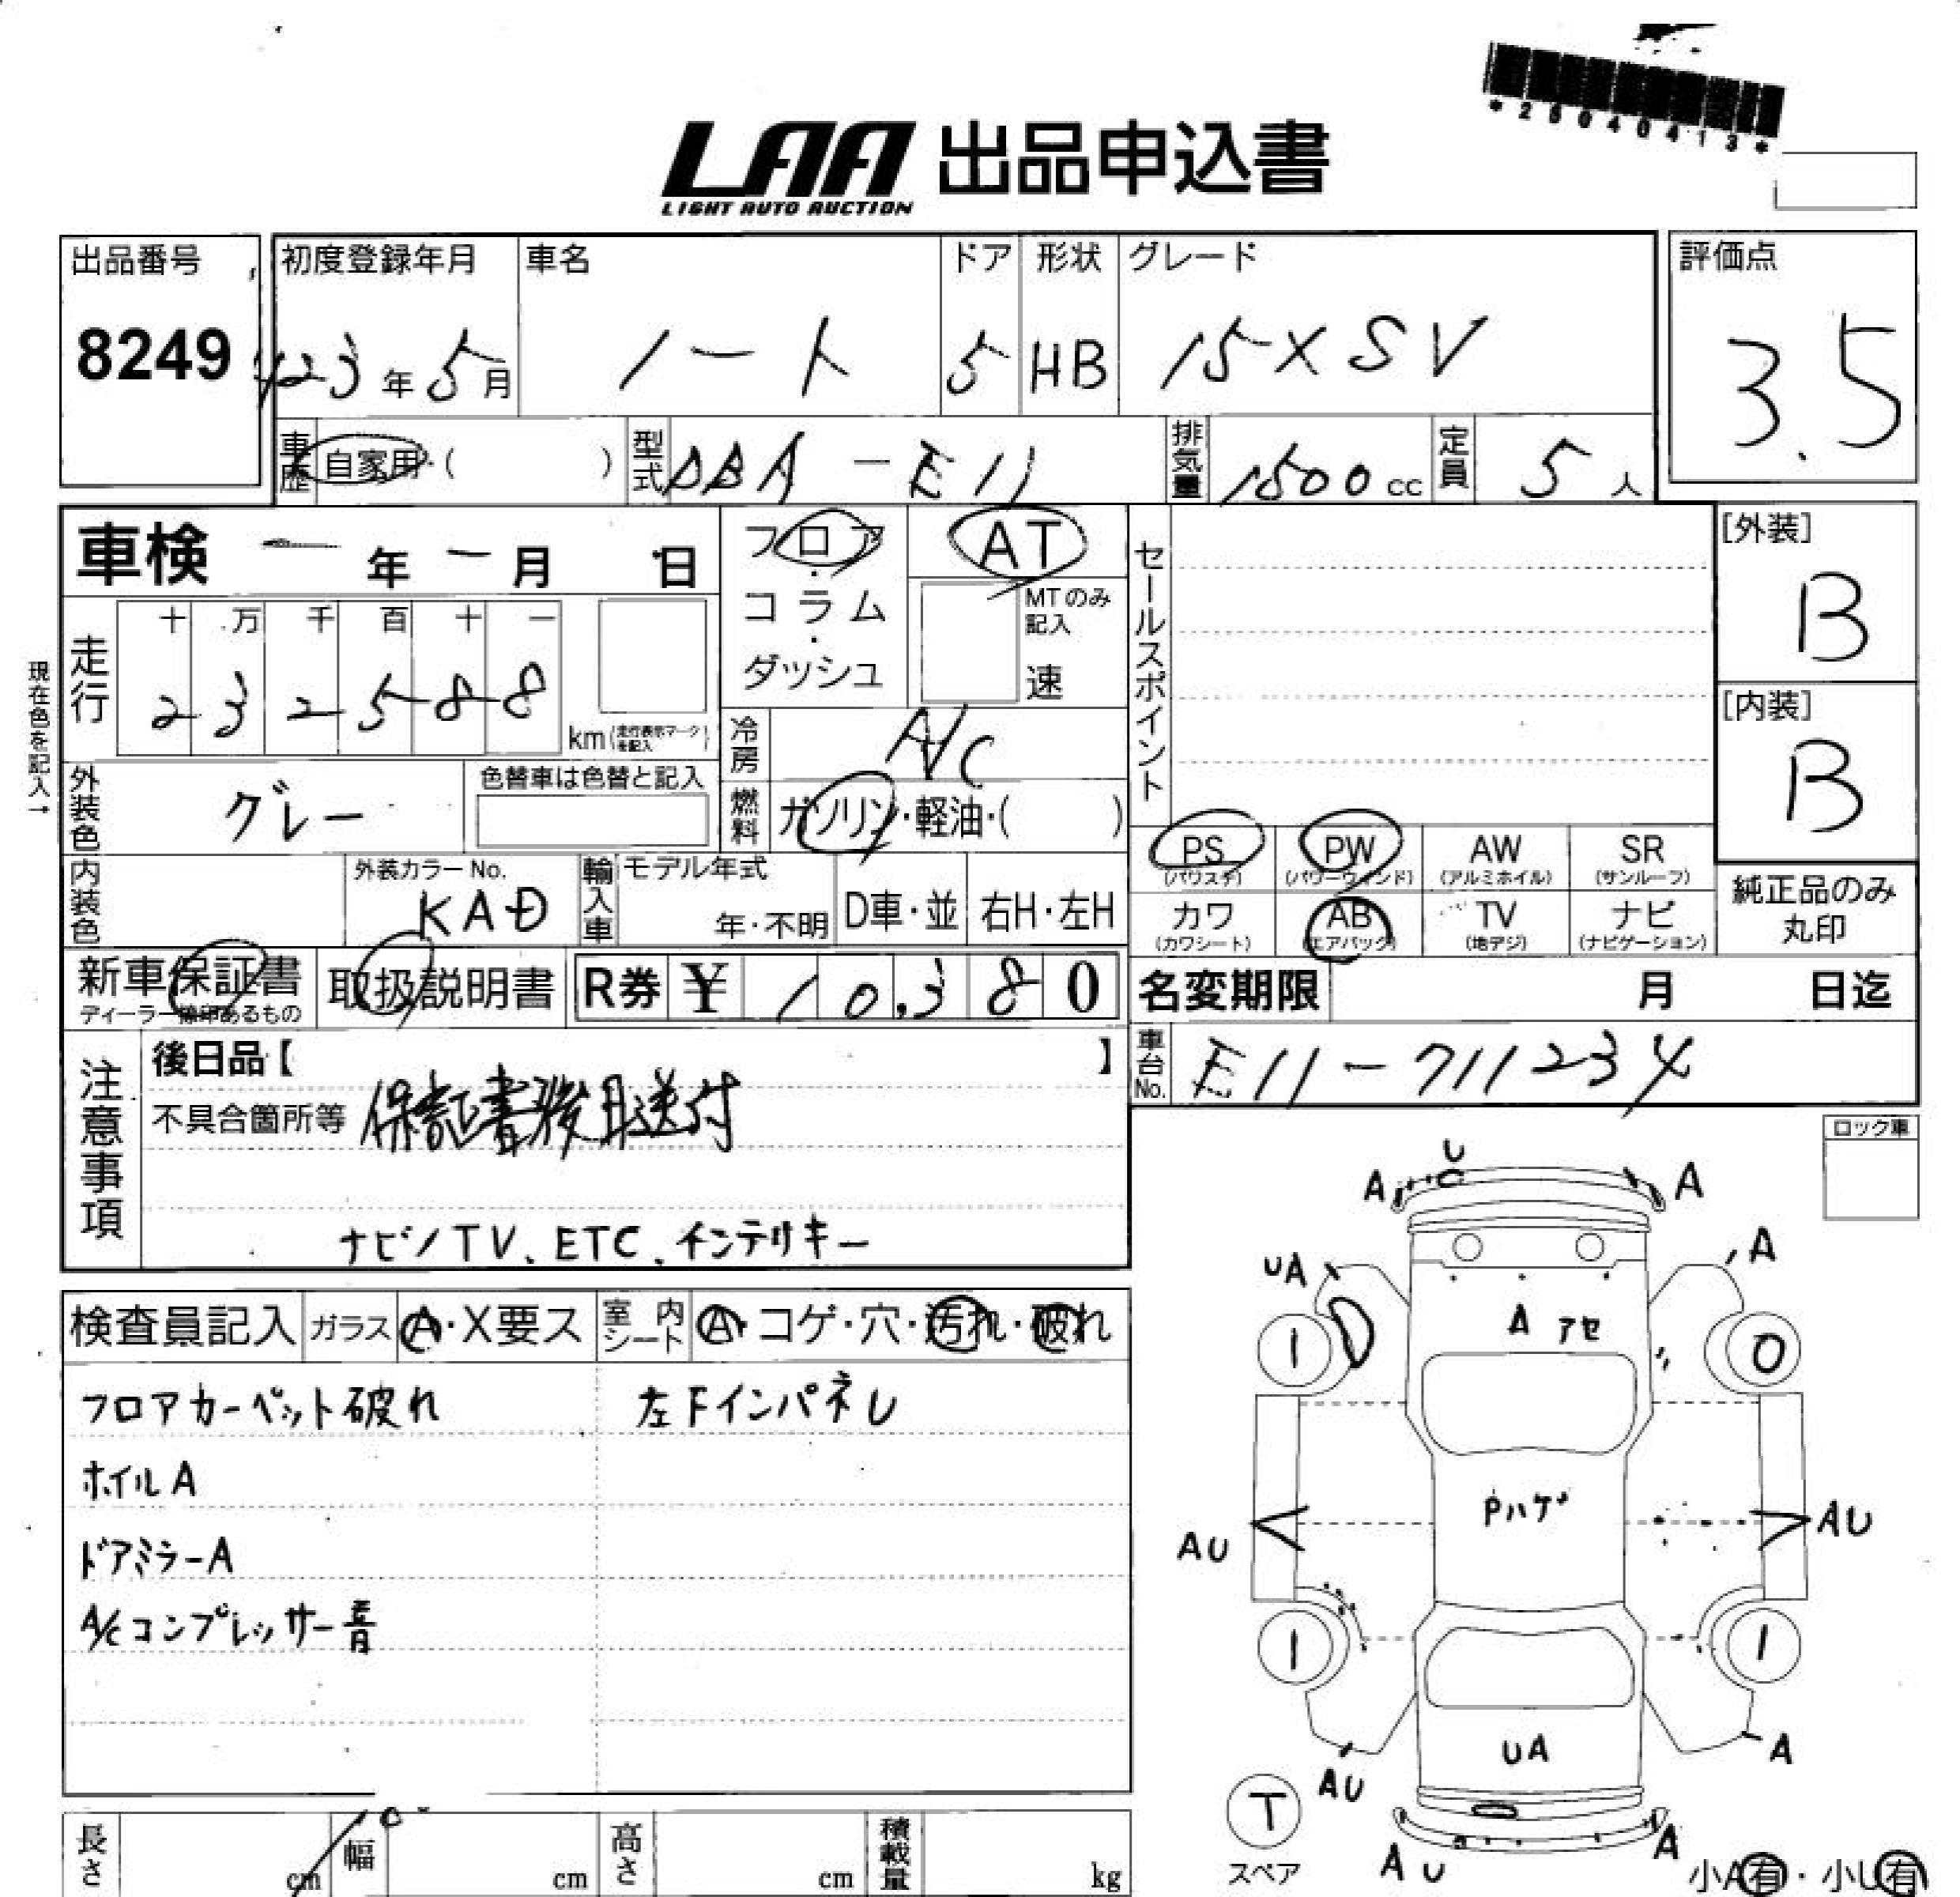 *25040413*
LAA 出品申込書
LIGHT AUTO AUCTION
出品番号 初度登録年月 車名 ドア 形状 グレード 評価点
8249 23年5月 ノート 5 HB 15X SV 3.5
車歴 自家用・( ) 型式 DBA-E11 排気量 1500cc 定員 5人
車検 ー年 ー月 日 フロア・コラム・ダッシュ AT
MTのみ記入 速
セールスポイント
[外装] B
[内装] B
現在色を記入→
走行 十 万 千 百 十 一
2 3 2 5 8 8 km(走行表示マークを記入)
冷房 A/C
外装色 グレー 色替車は色替と記入
燃料 ガソリン・軽油・( )
PS (パワステ) PW (パワーウィンド) AW (アルミホイル) SR (サンルーフ)
カワ (カワシート) AB (エアバック) TV (地デジ) ナビ (ナビゲーション)
純正品のみ丸印
内装色 外装カラーNo. KAD 輸入車 モデル年式 年・不明 D車・並 右H・左H
新車保証書 取扱説明書 R券 ¥ 10.380 名変期限 月 日迄
ディーラー捺印あるもの
車台No. E11-711234
注意事項 後日品【 】
不具合箇所等 保証書後日送付
ナビ/TV、ETC、インテリキー
ロック車
検査員記入 ガラス A・X要ス 室内シート A・コゲ・穴・汚れ・破れ
フロアカーペット破れ 左FインパネU
ホイルA
ドアミラーA
A/Cコンプレッサー音
U
A A
UA A
A アセ
1 0
Pハゲ
AU AU
1 1
UA A
AU
T
スペア
A U A
小A有・小U有
長さ cm 幅 cm 高さ cm 積載量 kg